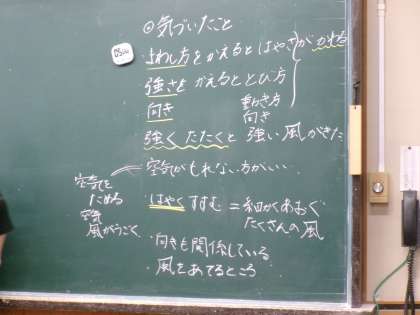 ◎気づいたこと
まわし方をかえるとはやさがかわる
強さをかえるととび方
向き
動き方
向き
強くたたくと強い風がきた
空気がもれない方がいい…
空気を
ためる
空気
風がうごく
はやくすすむ＝細かくあおぐ
たくさんの風
・向きも関係している
・風をあてるところ